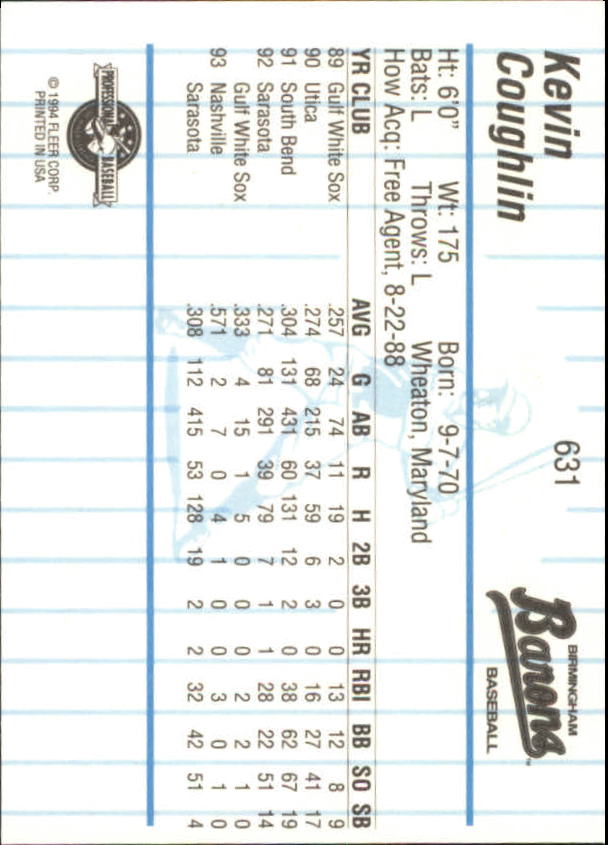 Kevin
Coughlin
631
BIRMINGHAM
Barons
BASEBALL
Ht: 6'0" Wt: 175 Born: 9-7-70
Bats: L Throws: L Wheaton, Maryland
How Acq: Free Agent, 8-22-88
YR CLUB AVG G AB R H 2B 3B HR RBI BB SO SB
89 Gulf White Sox .257 24 74 11 19 2 0 0 13 12 8 9
90 Utica .274 68 215 37 59 6 3 0 16 27 41 17
91 South Bend .304 131 431 60 131 12 2 0 38 62 67 19
92 Sarasota .271 81 291 39 79 7 1 1 28 22 51 14
Gulf White Sox .333 4 15 1 5 0 0 0 2 2 1 0
93 Nashville .571 2 7 0 4 1 0 0 3 0 1 0
Sarasota .308 112 415 53 128 19 2 2 32 42 51 4
PROFESSIONAL BASEBALL
© 1994 FLEER CORP.
PRINTED IN USA